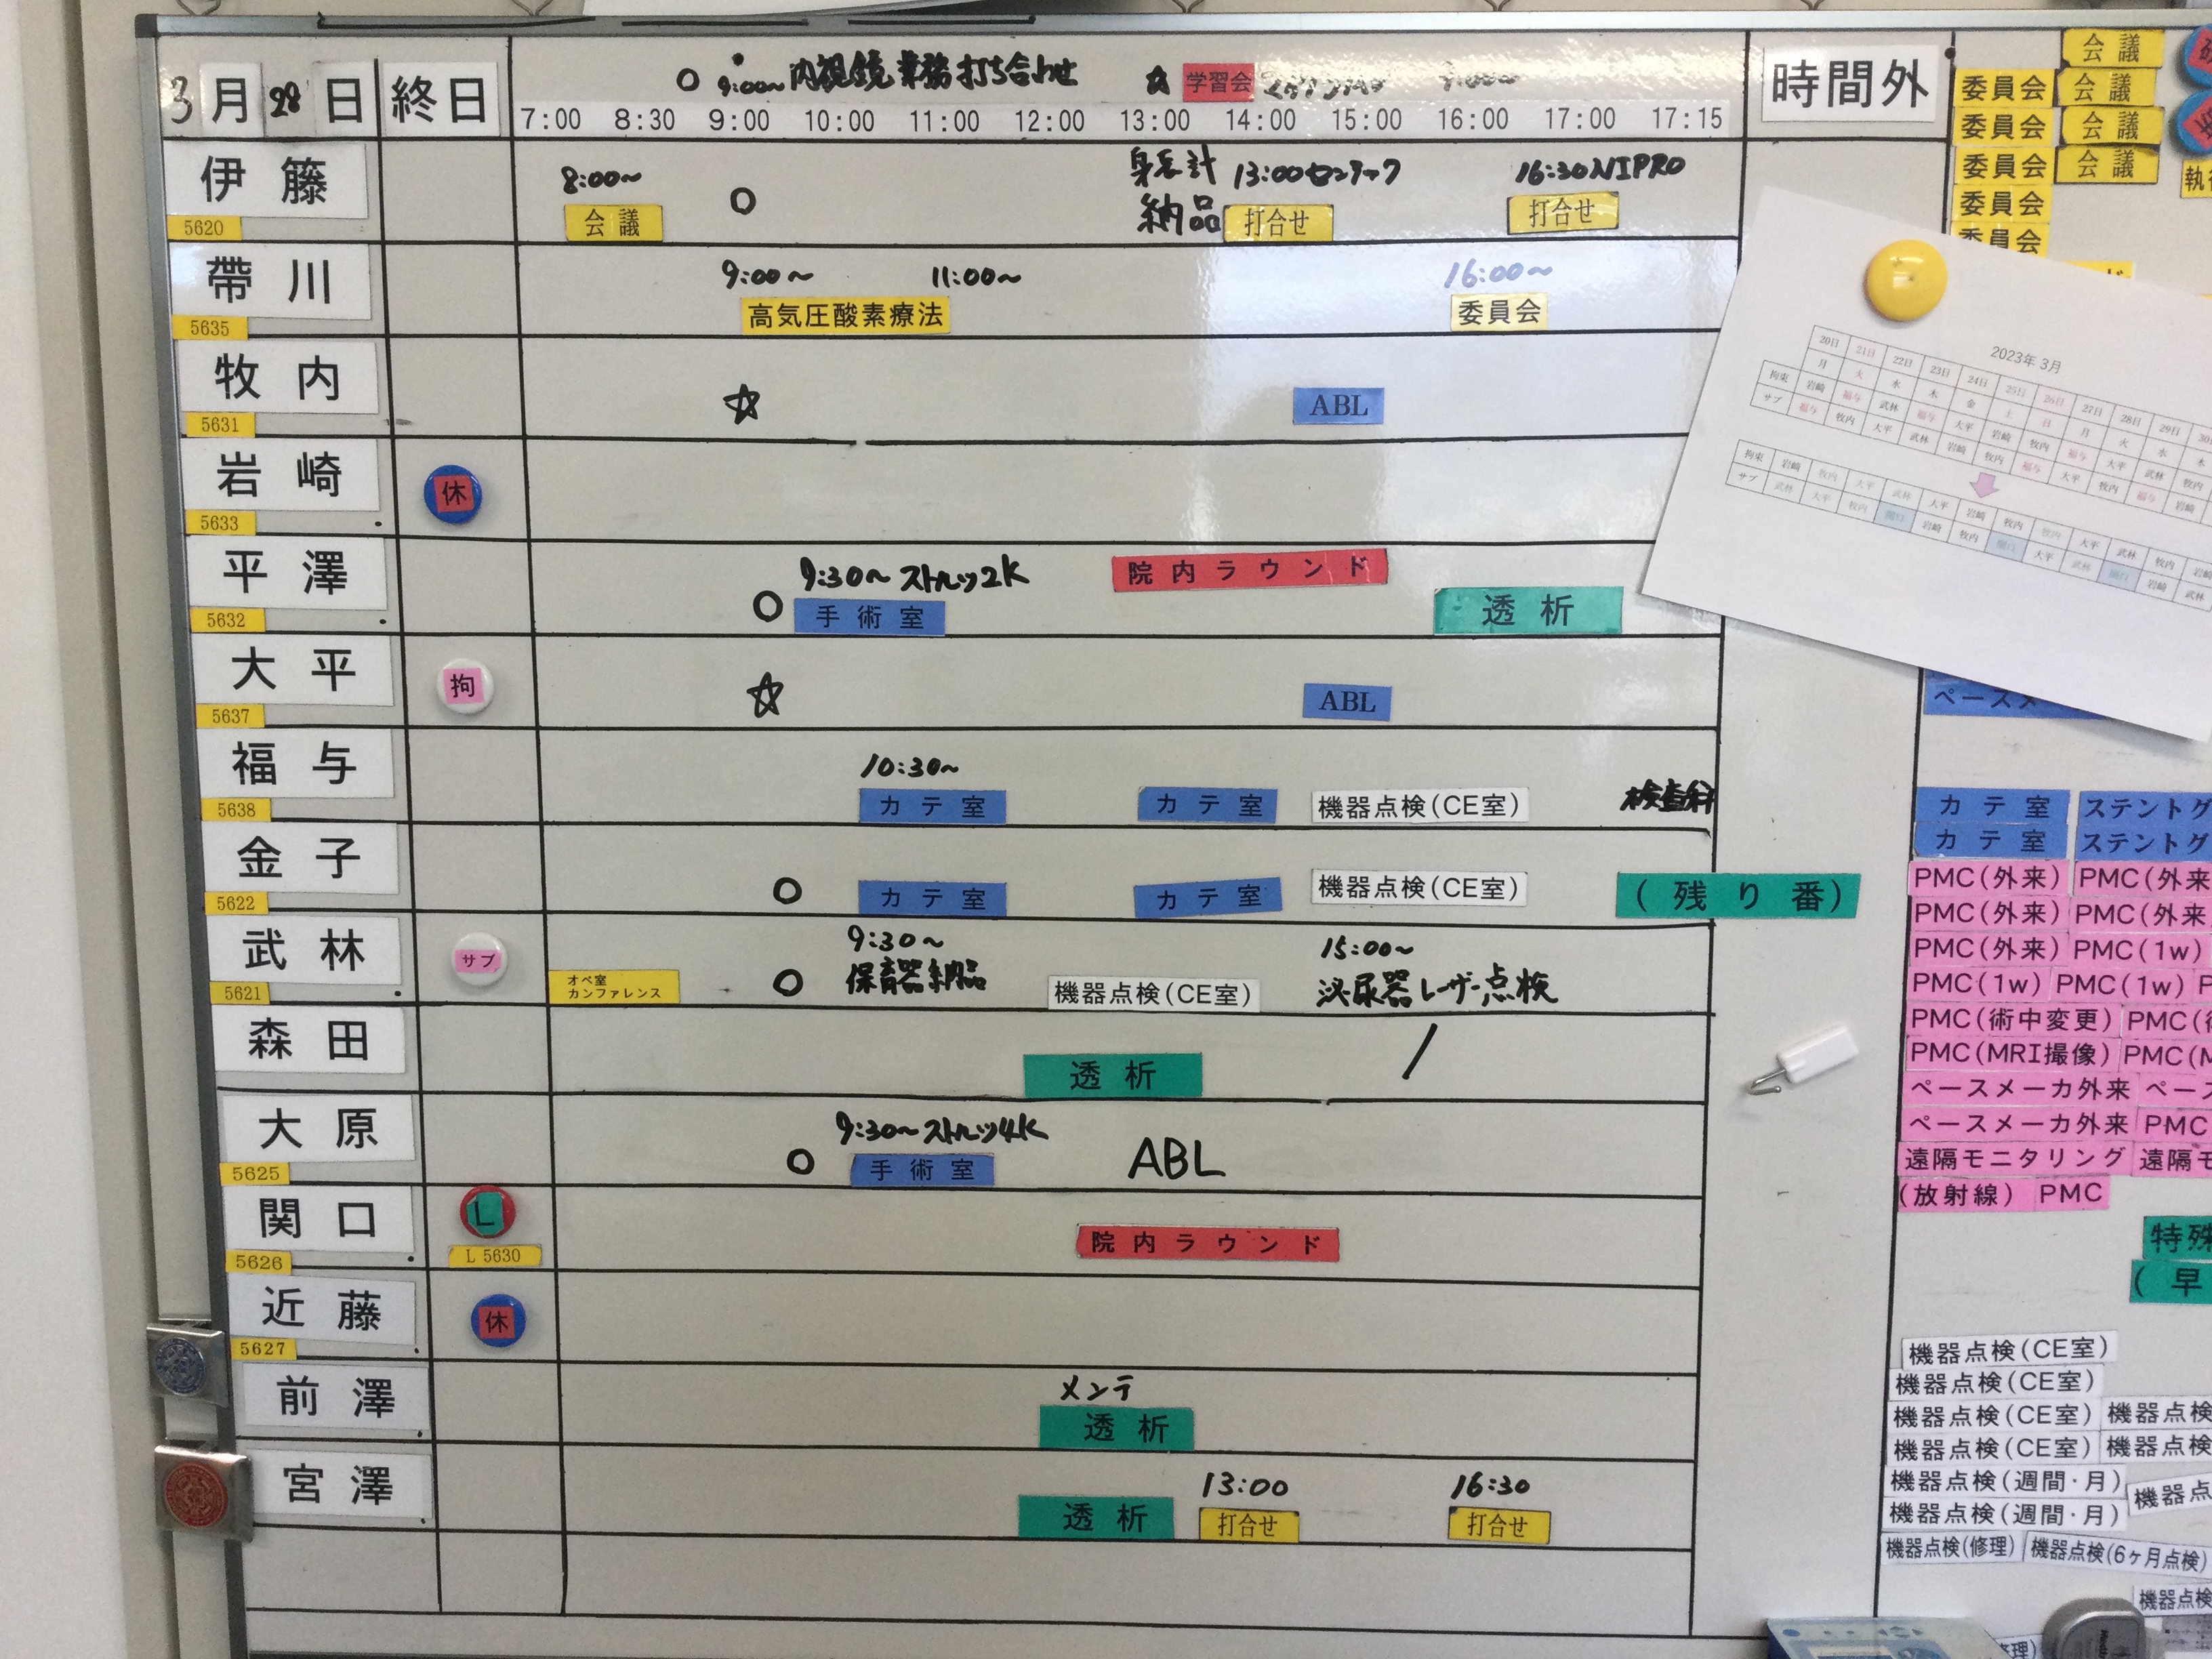 ○ 9:00〜 内視鏡業務打ち合わせ ☆ 学習会
3月 28日 終日 7:00 8:30 9:00 10:00 11:00 12:00 13:00 14:00 15:00 16:00 17:00 17:15 時間外
伊藤 5620 8:00〜 会議 ○ 身長計 納品 13:00 センテック 打合せ 16:30 NIPRO 打合せ
帶川 5635 9:00〜 11:00〜 高気圧酸素療法 16:00〜 委員会
牧内 5631 ☆ ABL
岩崎 5633 休
平澤 5632 ○ 9:30〜ストルツ2K 手術室 院内ラウンド 透析
大平 5637 拘 ☆ ABL
福与 5638 10:30〜 カテ室 カテ室 機器点検(CE室) 検査科
金子 5622 ○ カテ室 カテ室 機器点検(CE室) (残り番)
武林 5621 サブ オペ室 カンファレンス ○ 9:30〜 保育器納品 機器点検(CE室) 15:00〜 泌尿器レーザー点検
森田 透析 /
大原 5625 ○ 9:30〜ストルツ4K 手術室 ABL
関口 5626 L L 5630 院内ラウンド
近藤 5627 休
前澤 メンテ 透析
宮澤 透析 13:00 打合せ 16:30 打合せ
会議
委員会 会議
委員会 会議
委員会 会議
委員会
委員会
2023年 3月
20日 21日 22日 23日 24日 25日 26日 27日 28日 29日
月 火 水 木 金 土 日 月 火 水 木
拘束 岩崎 福与 武林 福与 大平 岩崎 牧内 福与 大平 武林 牧内
サブ 福与 牧内 大平 武林 岩崎 牧内 福与 大平 牧内 福与 岩崎
拘束 岩崎 牧内 大平 武林 大平 岩崎 牧内 牧内 大平 武林 牧内
サブ 武林 大平 牧内 関口 岩崎 牧内 関口 大平 武林 関口 岩崎 武林
カテ室
カテ室
PMC(外来)
PMC(外来)
PMC(外来) PMC(1w)
PMC(1w) PMC(1w)
PMC(術中変更)
PMC(MRI撮像)
ペースメーカ外来
ペースメーカ外来 PMC
遠隔モニタリング
(放射線) PMC
機器点検(CE室)
機器点検(CE室)
機器点検(CE室) 機器点検
機器点検(CE室) 機器点検
機器点検(週間・月)
機器点検(週間・月)
機器点検(修理) 機器点検(6ヶ月点検)
機器点検